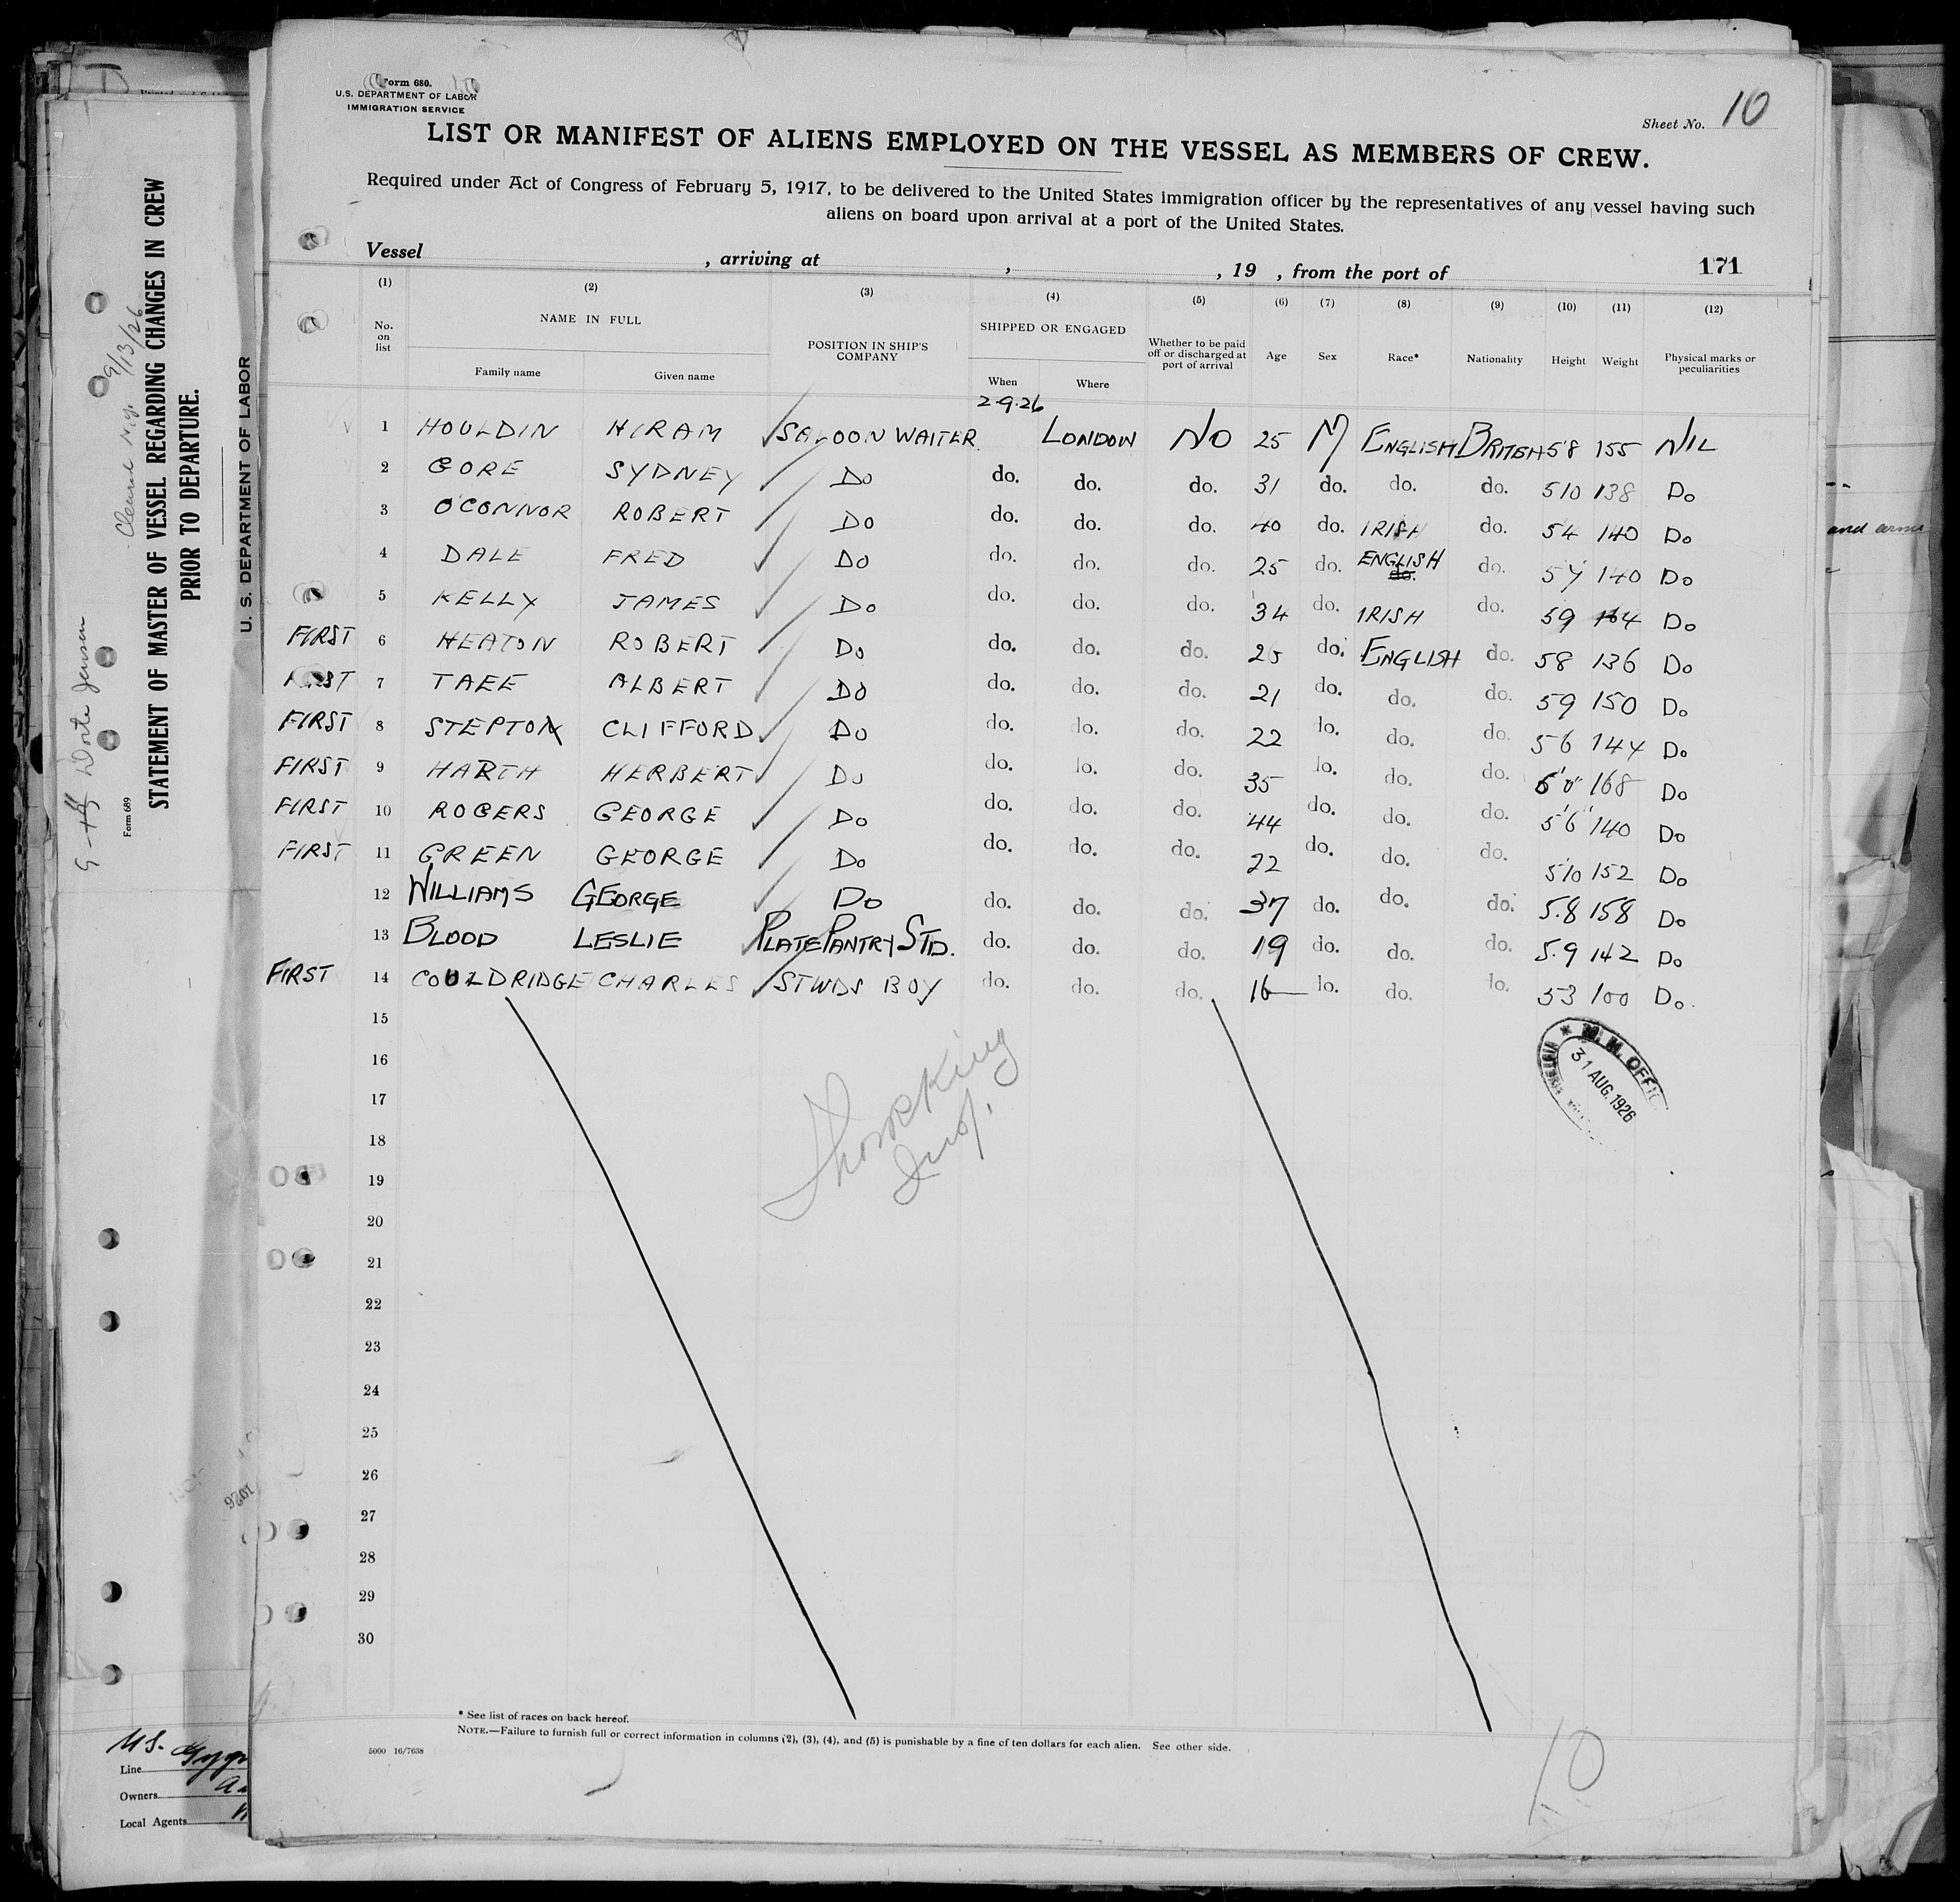 Form 680.
U.S. DEPARTMENT OF LABOR
IMMIGRATION SERVICE
Sheet No. 10
LIST OR MANIFEST OF ALIENS EMPLOYED ON THE VESSEL AS MEMBERS OF CREW.
Required under Act of Congress of February 5, 1917, to be delivered to the United States immigration officer by the representatives of any vessel having such
aliens on board upon arrival at a port of the United States.
Vessel , arriving at , , 19 , from the port of 171
(1) (2) (3) (4) (5) (6) (7) (8) (9) (10) (11) (12)
No. on list NAME IN FULL POSITION IN SHIP'S COMPANY SHIPPED OR ENGAGED Whether to be paid off or discharged at port of arrival Age Sex Race* Nationality Height Weight Physical marks or peculiarities
Family name Given name When Where
2.9.26
1 HOULDIN HIRAM SALOON WAITER LONDON NO 25 M ENGLISH BRITISH 5'8 155 NIL
2 GORE SYDNEY DO do. do. do. 31 do. do. do. 510 138 Do
3 O'CONNOR ROBERT DO do. do. do. 40 do. IRISH do. 54 140 Do
4 DALE FRED DO do. do. do. 25 do. ENGLISH do. do. 57 140 Do
5 KELLY JAMES DO do. do. do. 34 do. IRISH do. 59 164 Do
FIRST 6 HEATON ROBERT DO do. do. do. 25 do. ENGLISH do. 58 136 Do
FIRST 7 TAEE ALBERT DO do. do. do. 21 do. do. do. 59 150 Do
FIRST 8 STEPTON CLIFFORD DO do. do. do. 22 do. do. do. 56 144 Do
FIRST 9 HARTH HERBERT DO do. do. do. 35 do. do. do. 168 Do
FIRST 10 ROGERS GEORGE DO do. do. do. 44 do. do. do. 5'6" 140 Do
FIRST 11 GREEN GEORGE DO do. do. do. 22 do. do. do. 5'10 152 Do
12 WILLIAMS GEORGE DO do. do. do. 37 do. do. do. 5.8 158 Do
13 BLOOD LESLIE PLATE PANTRY STD. do. do. do. 19 do. do. do. 5.9 142 Do
FIRST 14 COULDRIDGE CHARLES STWDS BOY do. do. do. 16 do. do. do. 53 100 Do.
15
16
17
18
19
20
21
22
23
24
25
26
27
28
29
30
Insp.
M. M. OFFI
31 AUG. 1926
* See list of races on back hereof.
NOTE.—Failure to furnish full or correct information in columns (2), (3), (4), and (5) is punishable by a fine of ten dollars for each alien. See other side.
5000 16/7638
10
Form 689
U. S. DEPARTMENT OF LABOR
STATEMENT OF MASTER OF VESSEL REGARDING CHANGES IN CREW
PRIOR TO DEPARTURE.
9/13/26
1926
Line
Owners
Local Agents
and arms